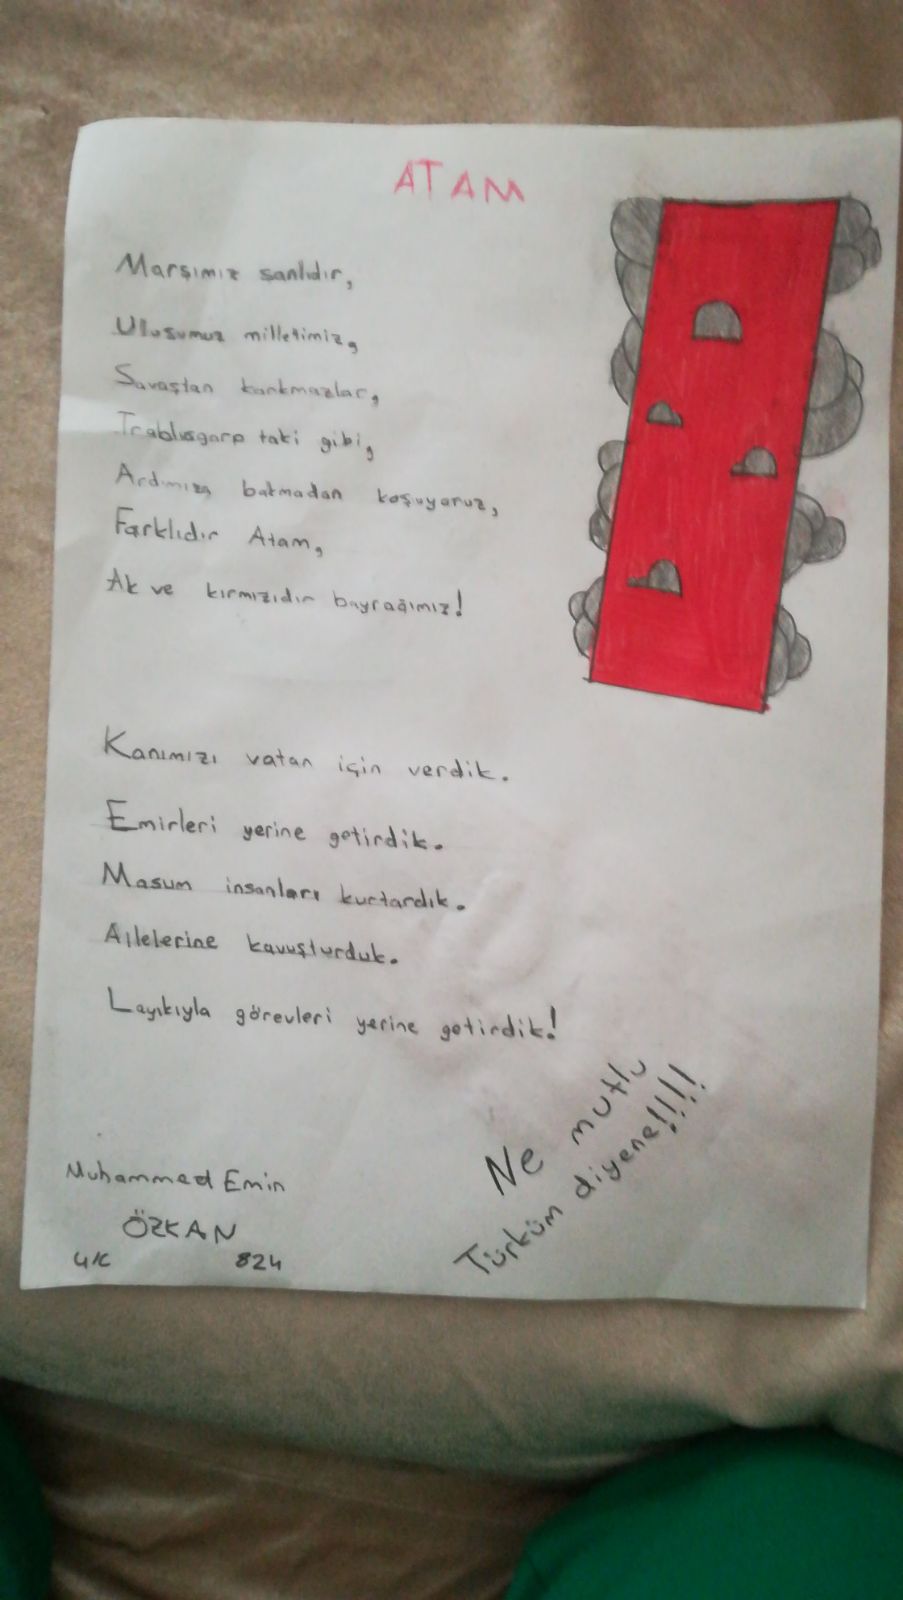 ATAM
Marşımız şanlıdır,
Ulusumuz milletimiz,
Savaştan korkmazlar,
Trablusgarp taki gibi,
Ardımıza bakmadan koşuyoruz,
Farklıdır Atam,
Ak ve kırmızıdır bayrağımız!
Kanımızı vatan için verdik.
Emirleri yerine getirdik.
Masum insanları kurtardık.
Ailelerine kavuşturduk.
Layıkıyla görevleri yerine getirdik!
Ne mutlu
Türküm diyene!!!!
Muhammed Emin
ÖZKAN
4/C 824